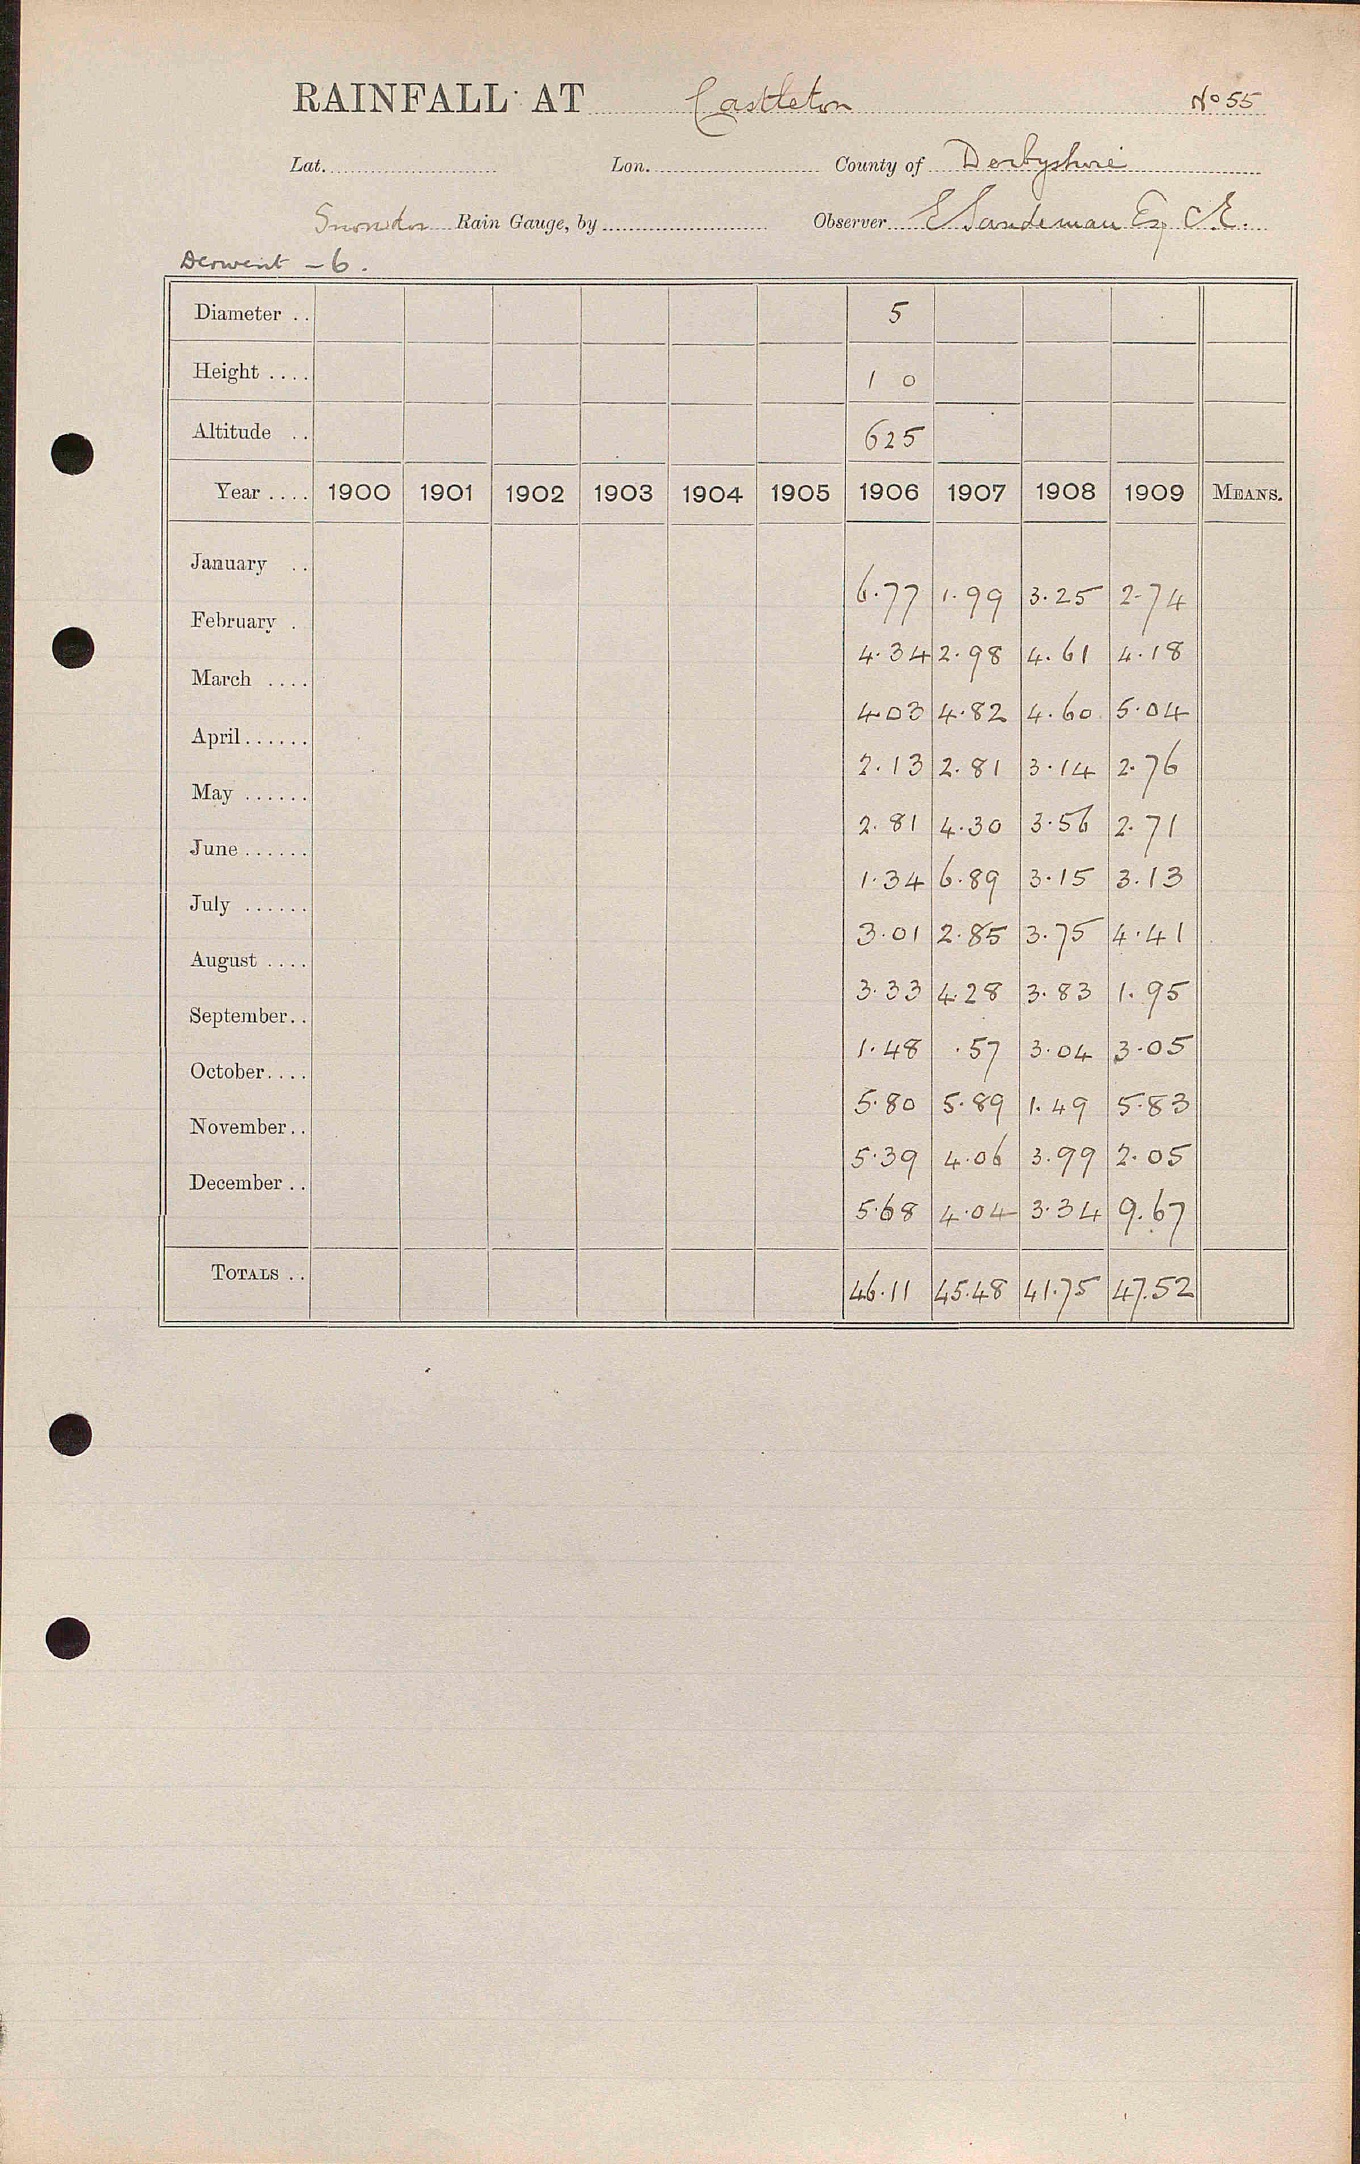 RAINFALL AT Castleton No 55
Lat. Lon. County of Derbyshire
Snowdon Rain Gauge, by Observer E Sandeman Esq C.E.
Derwent - 6.
Diameter .. 5
Height .... 1 0
Altitude .. 625
Year .... 1900 1901 1902 1903 1904 1905 1906 1907 1908 1909 MEANS.
January .. 6.77 1.99 3.25 2.74
February . 4.34 2.98 4.61 4.18
March .... 4.03 4.82 4.60 5.04
April...... 2.13 2.81 3.14 2.76
May ...... 2.81 4.30 3.56 2.71
June ...... 1.34 6.89 3.15 3.13
July ...... 3.01 2.85 3.75 4.41
August .... 3.33 4.28 3.83 1.95
September.. 1.48 .57 3.04 3.05
October.... 5.80 5.89 1.49 5.83
November.. 5.39 4.06 3.99 2.05
December .. 5.68 4.04 3.34 9.67
TOTALS .. 46.11 45.48 41.75 47.52